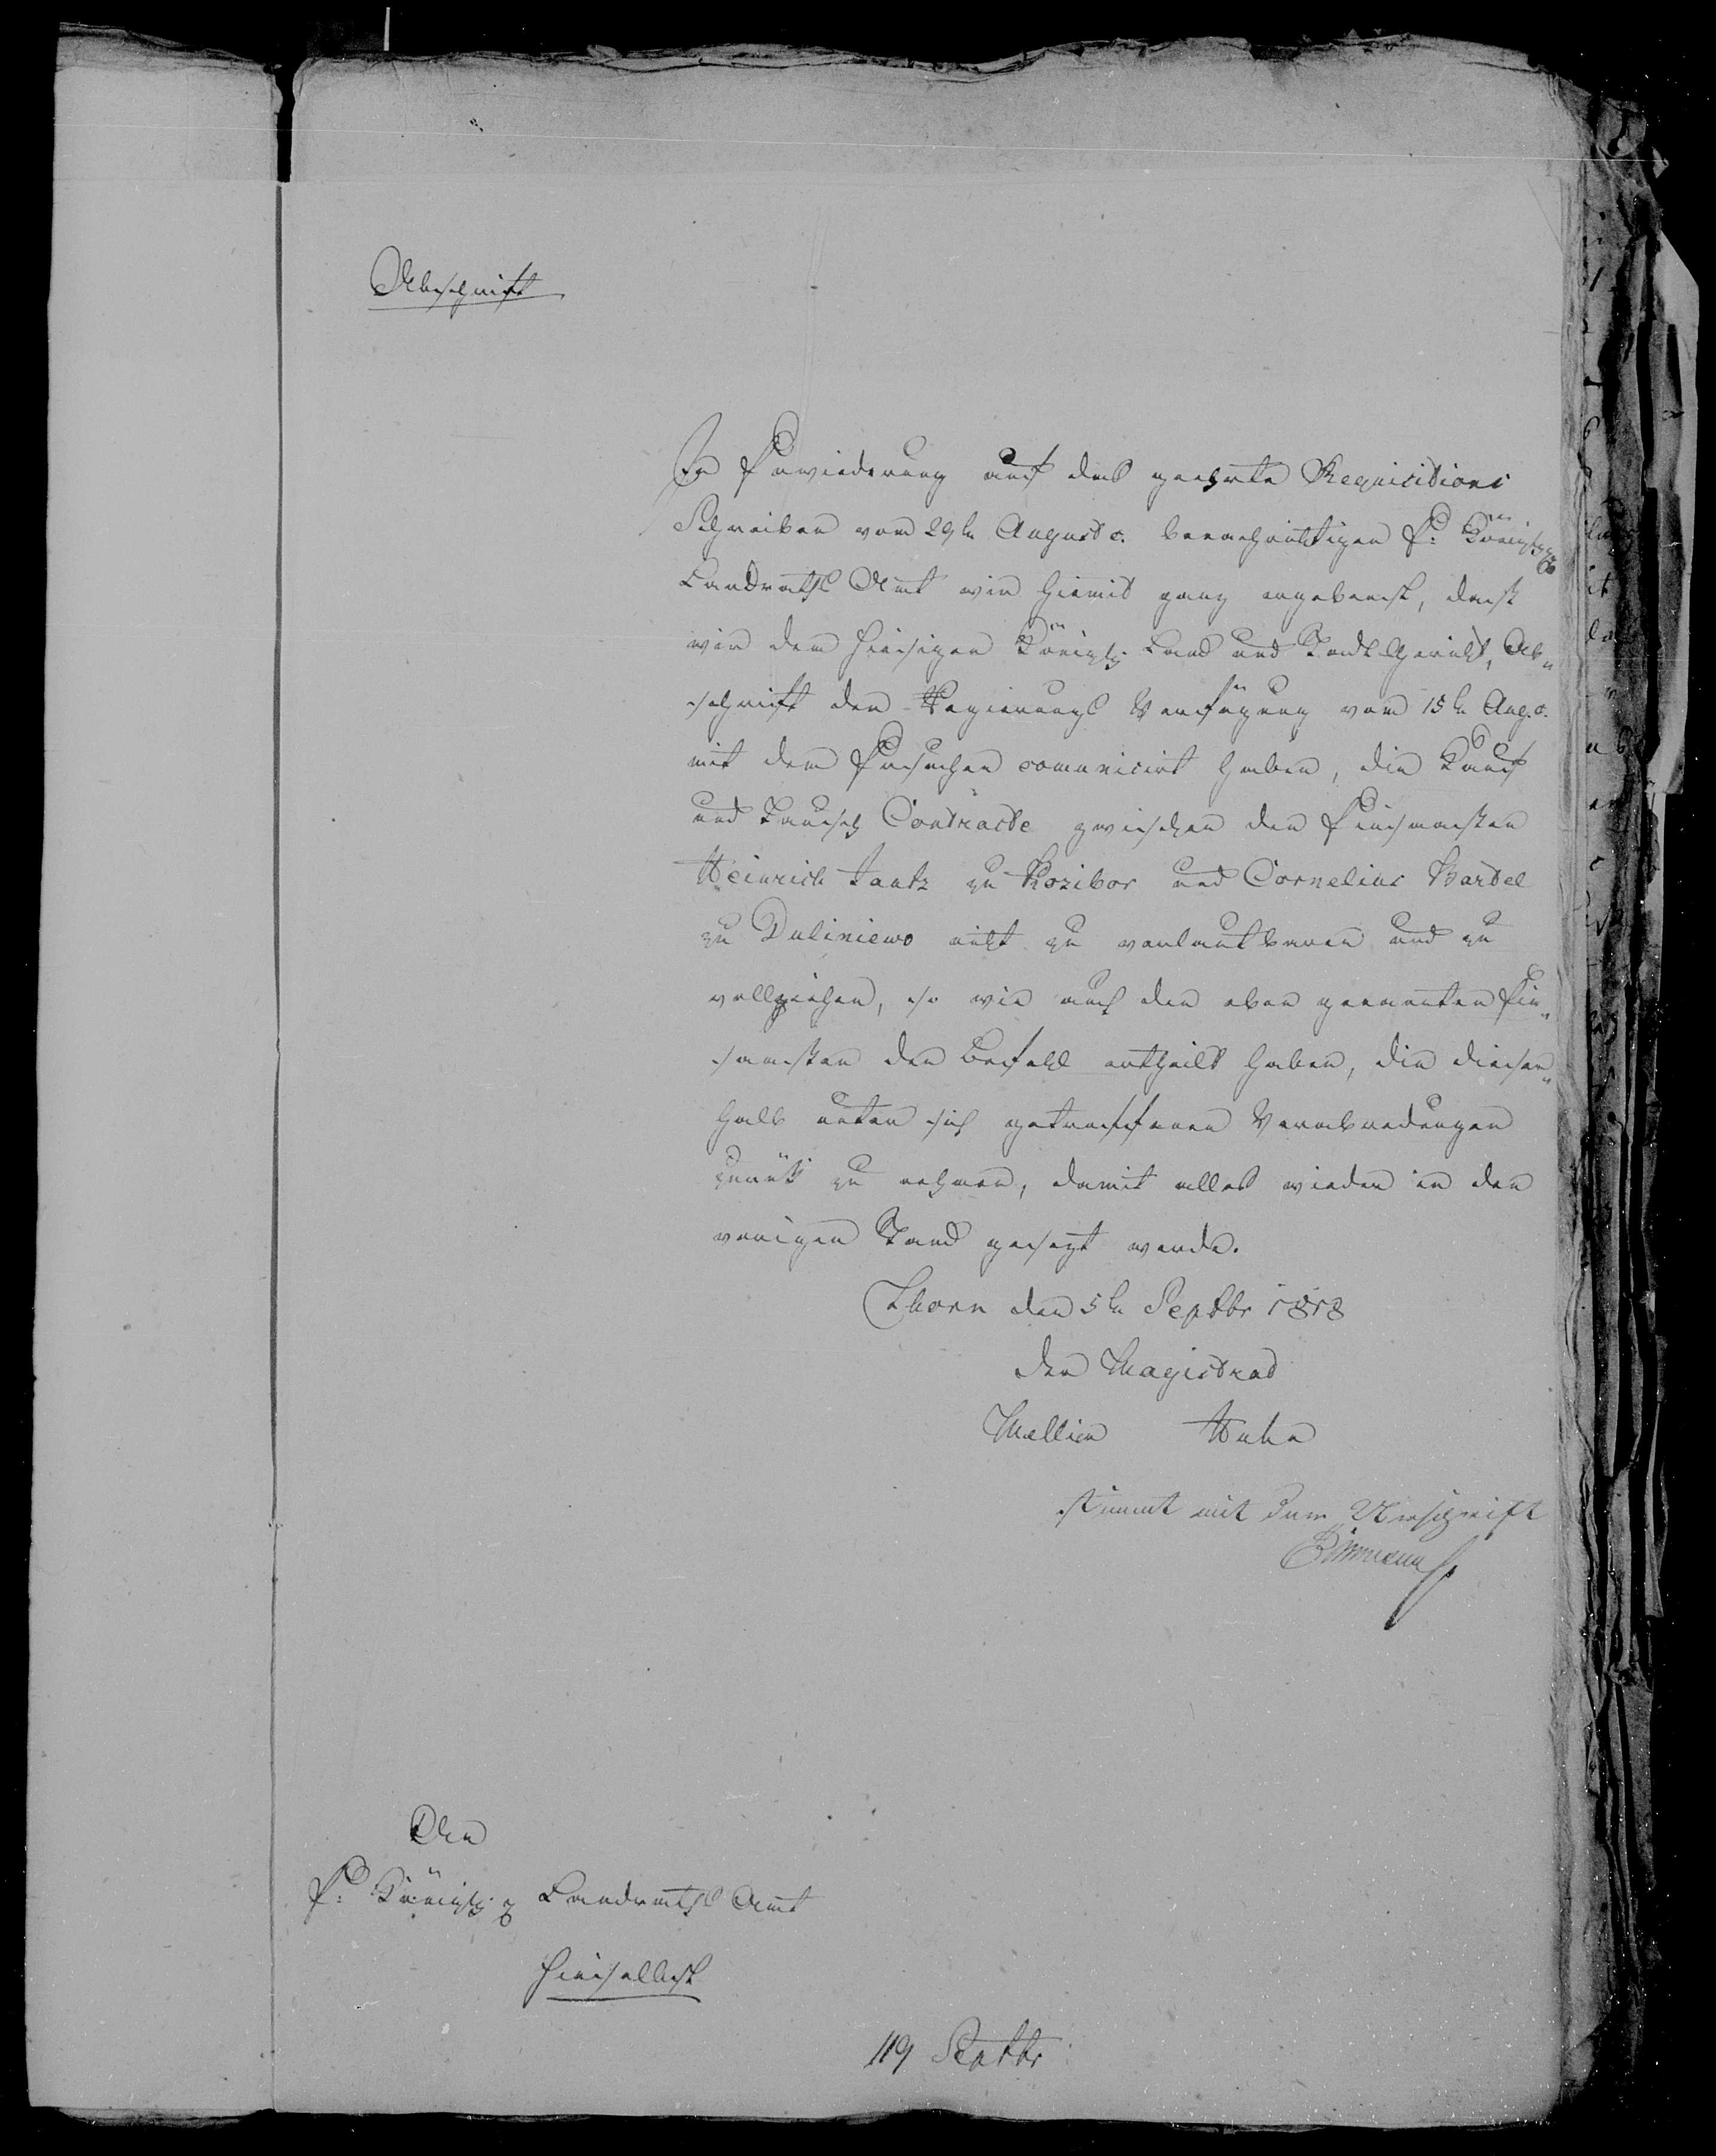 Abschrift
In Erwiederung auf das geehrte Requisitions
Schreiben vom 29tn August c. benachrichtigen E: Königl:
Landraths Amt wir hiemit ganz ergebenst, dass
wir dem hiesigen Königl: Land und Stadt Gericht, Ab„
schrift der Regierungs Verfügung vom 15tn Aug. c.
mit dem Ersuchen comunicirt haben, die Kauf
und Tausch Contracte zwischen den Einsaassen
Heinrich Jantz zu Kozibor und Cornelius Bartel
zu Duliniewo nicht zu verlautbaren und zu
vollziehen, so wie auch den eben genannten Ein„
saassen den Befehl ertheilt haben, die dieser„
halb unter sich getroffenen Verabredungen
zurük zu nehmen, damit alles wieder in den
vorigen Stand gesezt werde.
Thorn den 5tn Septbr 1818
Der Magistrat
Mellien
stimmt mit der Urschrift
An
E: Königl: Landraths Amt
hieselbst
119 Septbr